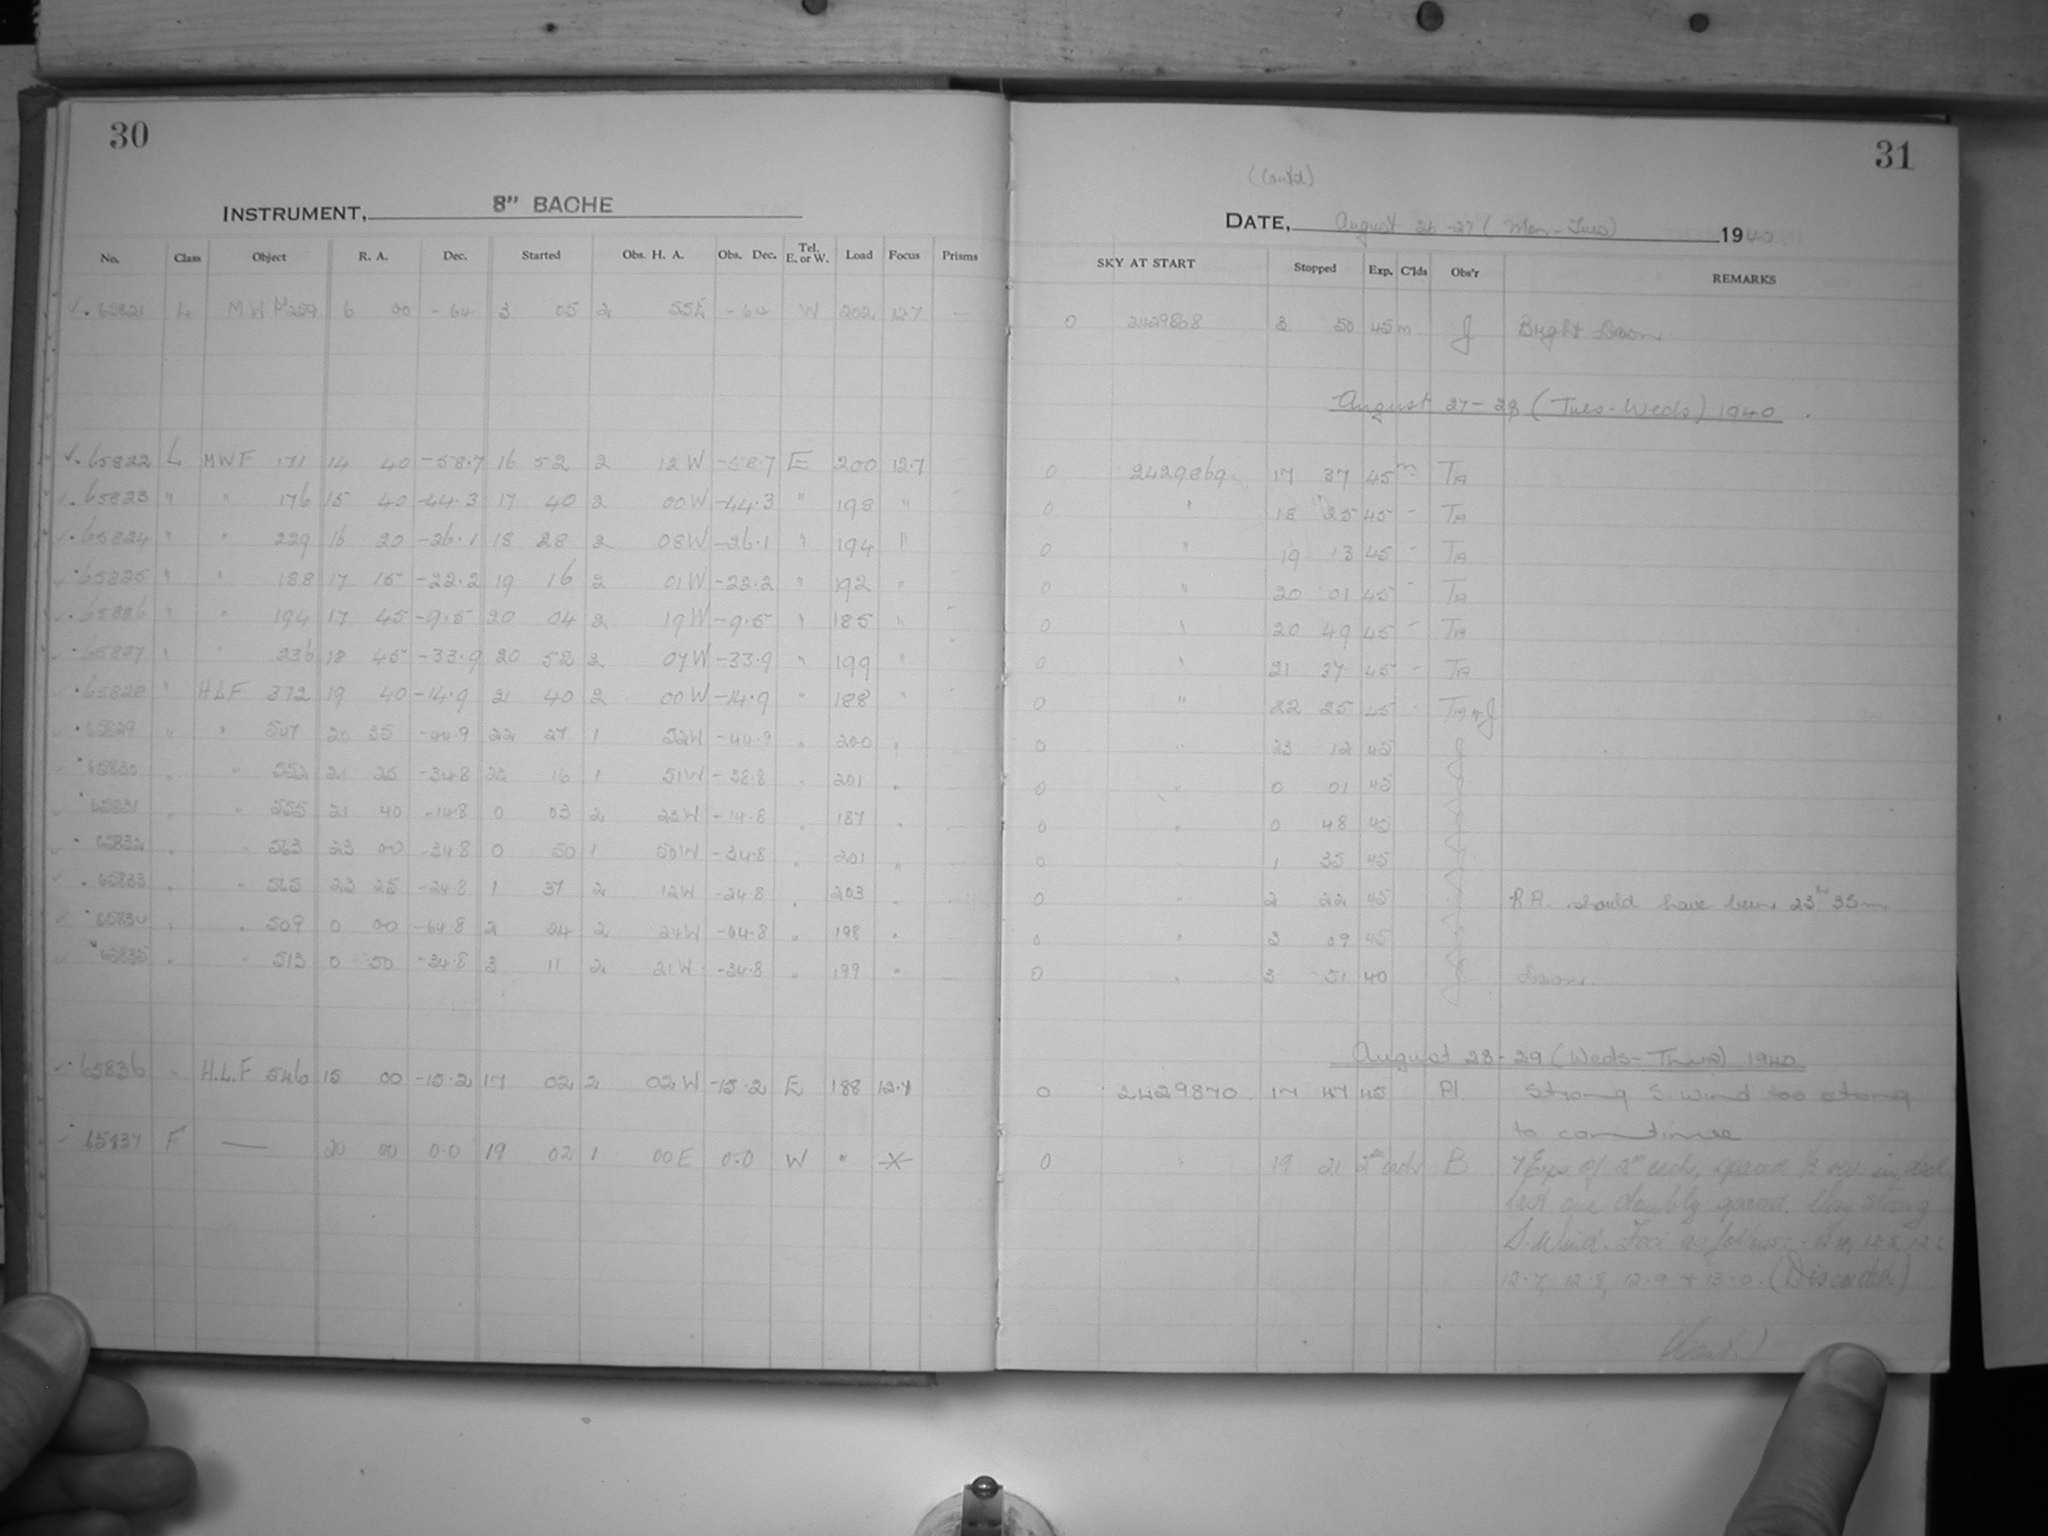 30
INSTRUMENT, 8" BACHE
No. Class Object R. A. Dec. Started Obs. H. A. Obs. Dec. Tel. E. or W. Load Focus Prisms
65821 L MWF 259 6 00 -64 3 05 2 55E -64 W 202 12.7 -
65822 L MWF 171 14 40 -58.7 16 52 2 12W -58.7 E 200 12.7
65823 " " 176 15 40 -44.3 17 40 2 00W -44.3 " 198 "
65824 " " 229 16 20 -26.1 18 28 2 08W -26.1 " 194 "
65825 " " 188 17 15 -22.2 19 16 2 01W -22.2 " 192 "
65826 " " 194 17 45 -9.5 20 04 2 19W -9.5 " 185 "
65827 " " 236 18 45 -33.9 20 52 2 07W -33.9 " 199 "
65828 " HLF 372 19 40 -14.9 21 40 2 00W -14.9 " 188 "
65829 " " 547 20 35 -44.9 22 27 1 52W -44.9 " 200 "
65830 " " 552 21 25 -34.8 23 16 1 51W " 201 "
65831 " " 555 21 40 -14.8 0 03 2 23W -14.8 " 187 "
65832 " " 563 23 00 -34.8 0 50 1 50W -34.8 " 201 "
65833 " " 565 23 25 -24.8 1 37 2 12W -24.8 " 203 "
65834 " " 509 0 00 -64.8 2 24 2 24W -64.8 " 198 "
65835 " " 513 0 50 -34.8 3 11 2 21W -34.8 " 199 "
65836 " H.L.F 546 15 00 -15.2 17 02 2 02W -15.2 E 188 12.7
65837 F — 20 00 0.0 19 02 1 00E 0.0 W " X
31
(Contd)
DATE, August 26-27 (Mon-Tues) 1940
SKY AT START Stopped Exp. C'lds Obs'r REMARKS
0 2429868 3 50 45m J Bright Dawn
August 27-28 (Tues-Weds) 1940.
0 2429869 17 37 45m TB
0 " 18 25 45 - TB
0 " 19 13 45 - TB
0 " 20 01 45 - TB
0 " 20 49 45 - TB
0 " 21 37 45 - TB
0 " 22 25 45 TB+J
0 " 23 12 45 J
0 " 0 01 45
0 " 0 48 45
0 " 1 35 45
0 " 2 22 45 R.A. should have been 23h 35m
0 " 3 09 45
0 " 3 51 40 J Dawn.
August 28-29 (Weds-Thurs) 1940
0 2429870 17 47 45 Pl. Strong S wind too strong
to continue
0 " 19 21 2m each B 7 Exps of 2m each, spaced 1/2 rev in decl
last one doubly spaced. Very strong
S. Wind. Foci as follows:- 12.4, 12.5, 12.6
12.7, 12.8, 12.9 + 13.0. (Discarded)